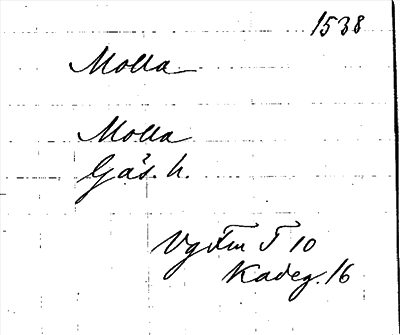 1538
Molla
Molla
Gäs. h.
VgFm T 10
Kadeg. 16